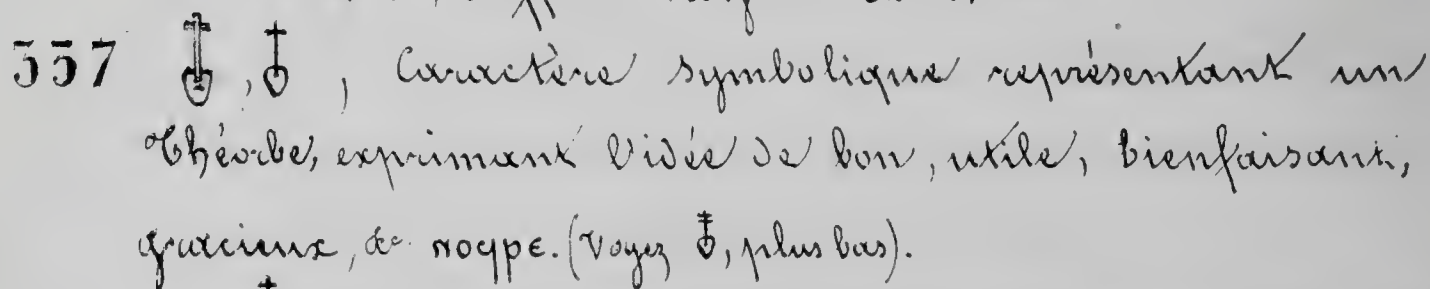 557 𓄤, 𓄤, Caractère symbolique représentant un
Théorbe, exprimant l'idée de bon, utile, bienfaisant,
gracieux, &c. ⲛⲟϥⲣⲉ. (Voyez 𓄤, plus bas).